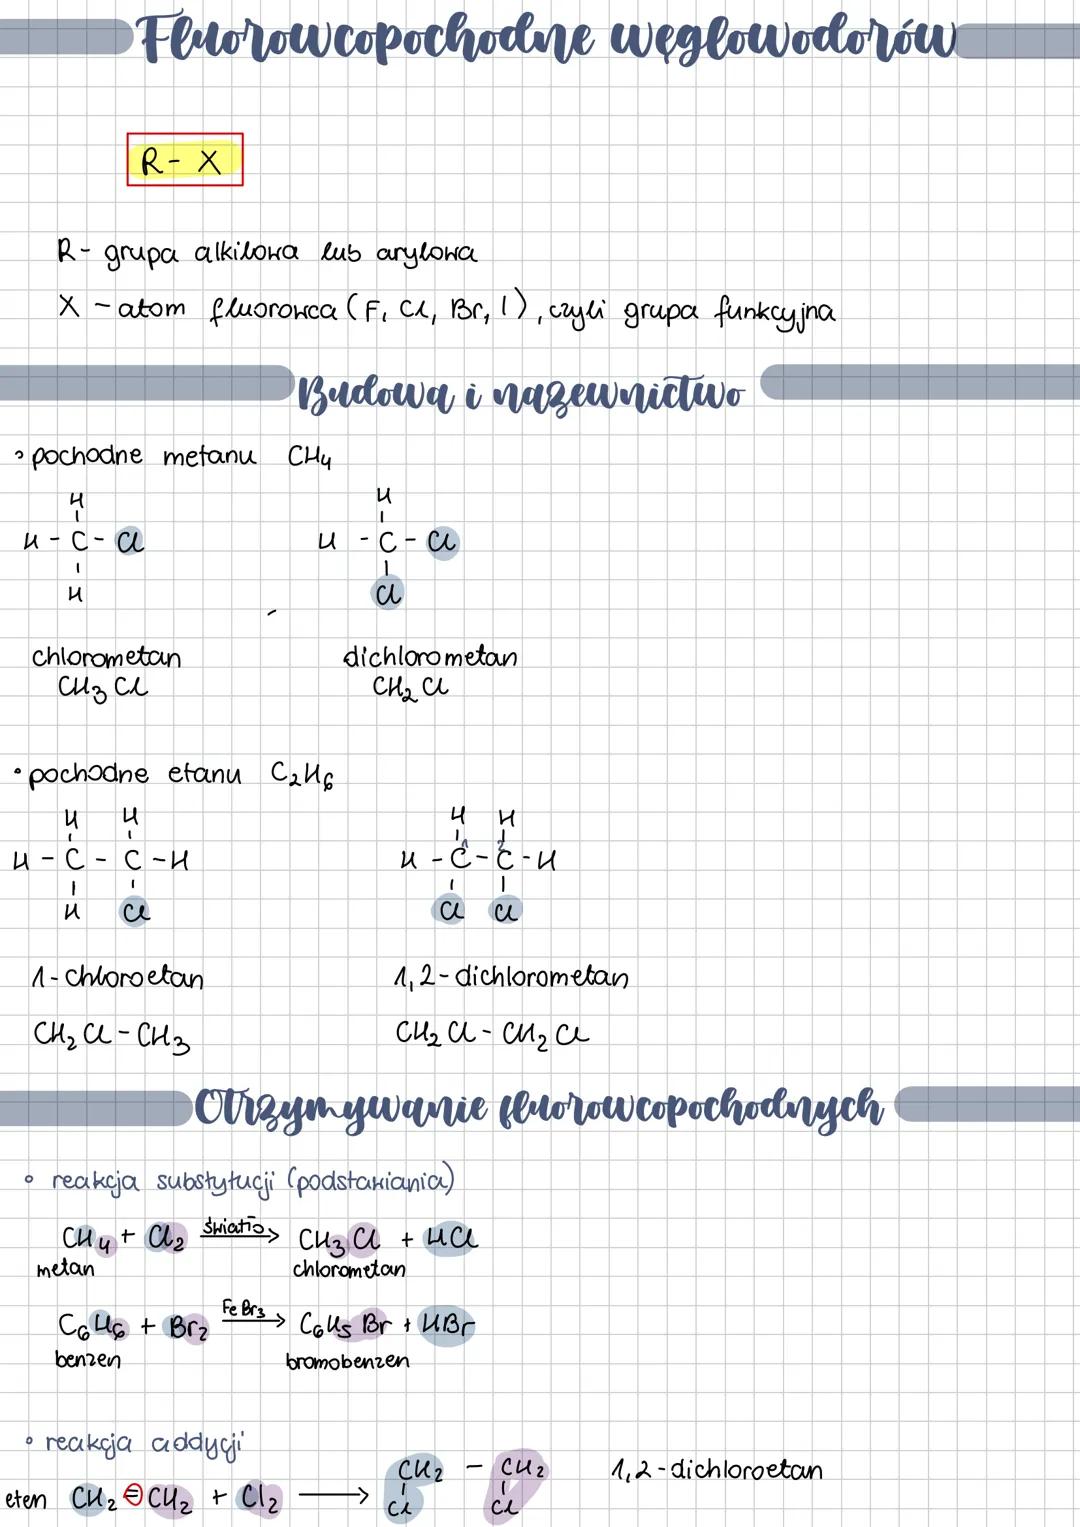 Fluorowcopochodne węglowodorów
R - X
R - grupa alkilowa lub arylowa
X - atom fluorowca (F, Cl, Br, I), czyli grupa funkcyjna
Budowa i nazewnictwo
• pochodne metanu CH₄
H H
H - C - Cl H - C - Cl
H Cl
chlorometan dichlorometan
CH₃Cl CH₂Cl
• pochodne etanu C₂H₆
H H H H
H - C - C - H H - C¹ - C² - H
H Cl Cl Cl
1-chloroetan 1,2-dichlorometan
CH₂Cl - CH₃ CH₂Cl - CH₂Cl
Otrzymywanie fluorowcopochodnych
• reakcja substytucji (podstawiania)
CH₄ + Cl₂ światło → CH₃Cl + HCl
metan chlorometan
C₆H₆ + Br₂ FeBr₃ → C₆H₅Br + HBr
benzen bromobenzen
• reakcja addycji
eten CH₂ = CH₂ + Cl₂ → CH₂ - CH₂ 1,2-dichloroetan
Cl Cl